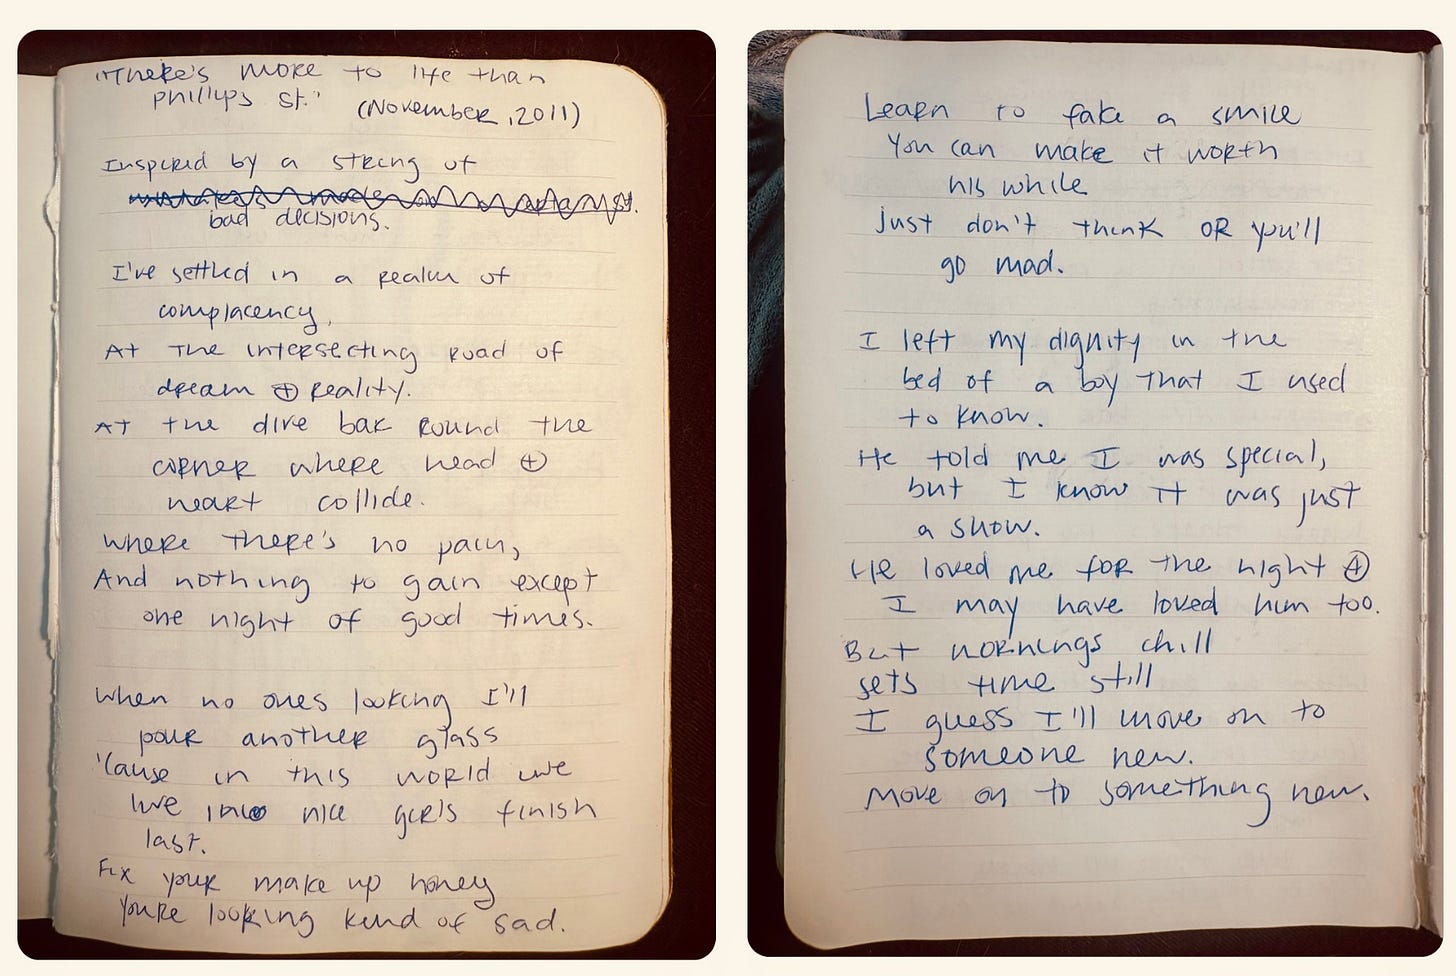 "There's more to life than
phillips st." (November, 2011)
Inspired by a string of
bad decisions.
I've settled in a realm of
complacency,
At the intersecting road of
dream + reality.
At the dive bar round the
corner where head +
heart collide.
where there's no pain,
And nothing to gain except
one night of good times.
when no ones looking I'll
pour another glass
'Cause in this world we
live in nice girls finish
last.
Fix your make up honey
youre looking kind of sad.
Learn to fake a smile
You can make it worth
his while
just don't think or you'll
go mad.
I left my dignity in the
bed of a boy that I used
to know.
He told me I was special,
but I know it was just
a show.
He loved me for the night +
I may have loved him too.
But mornings chill
sets time still
I guess I'll move on to
someone new.
Move on to something new.